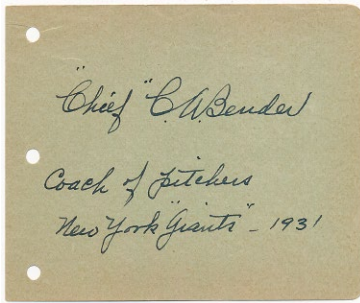 "Chief" C. A. Bender
Coach of pitchers
New York "Giants" - 1931